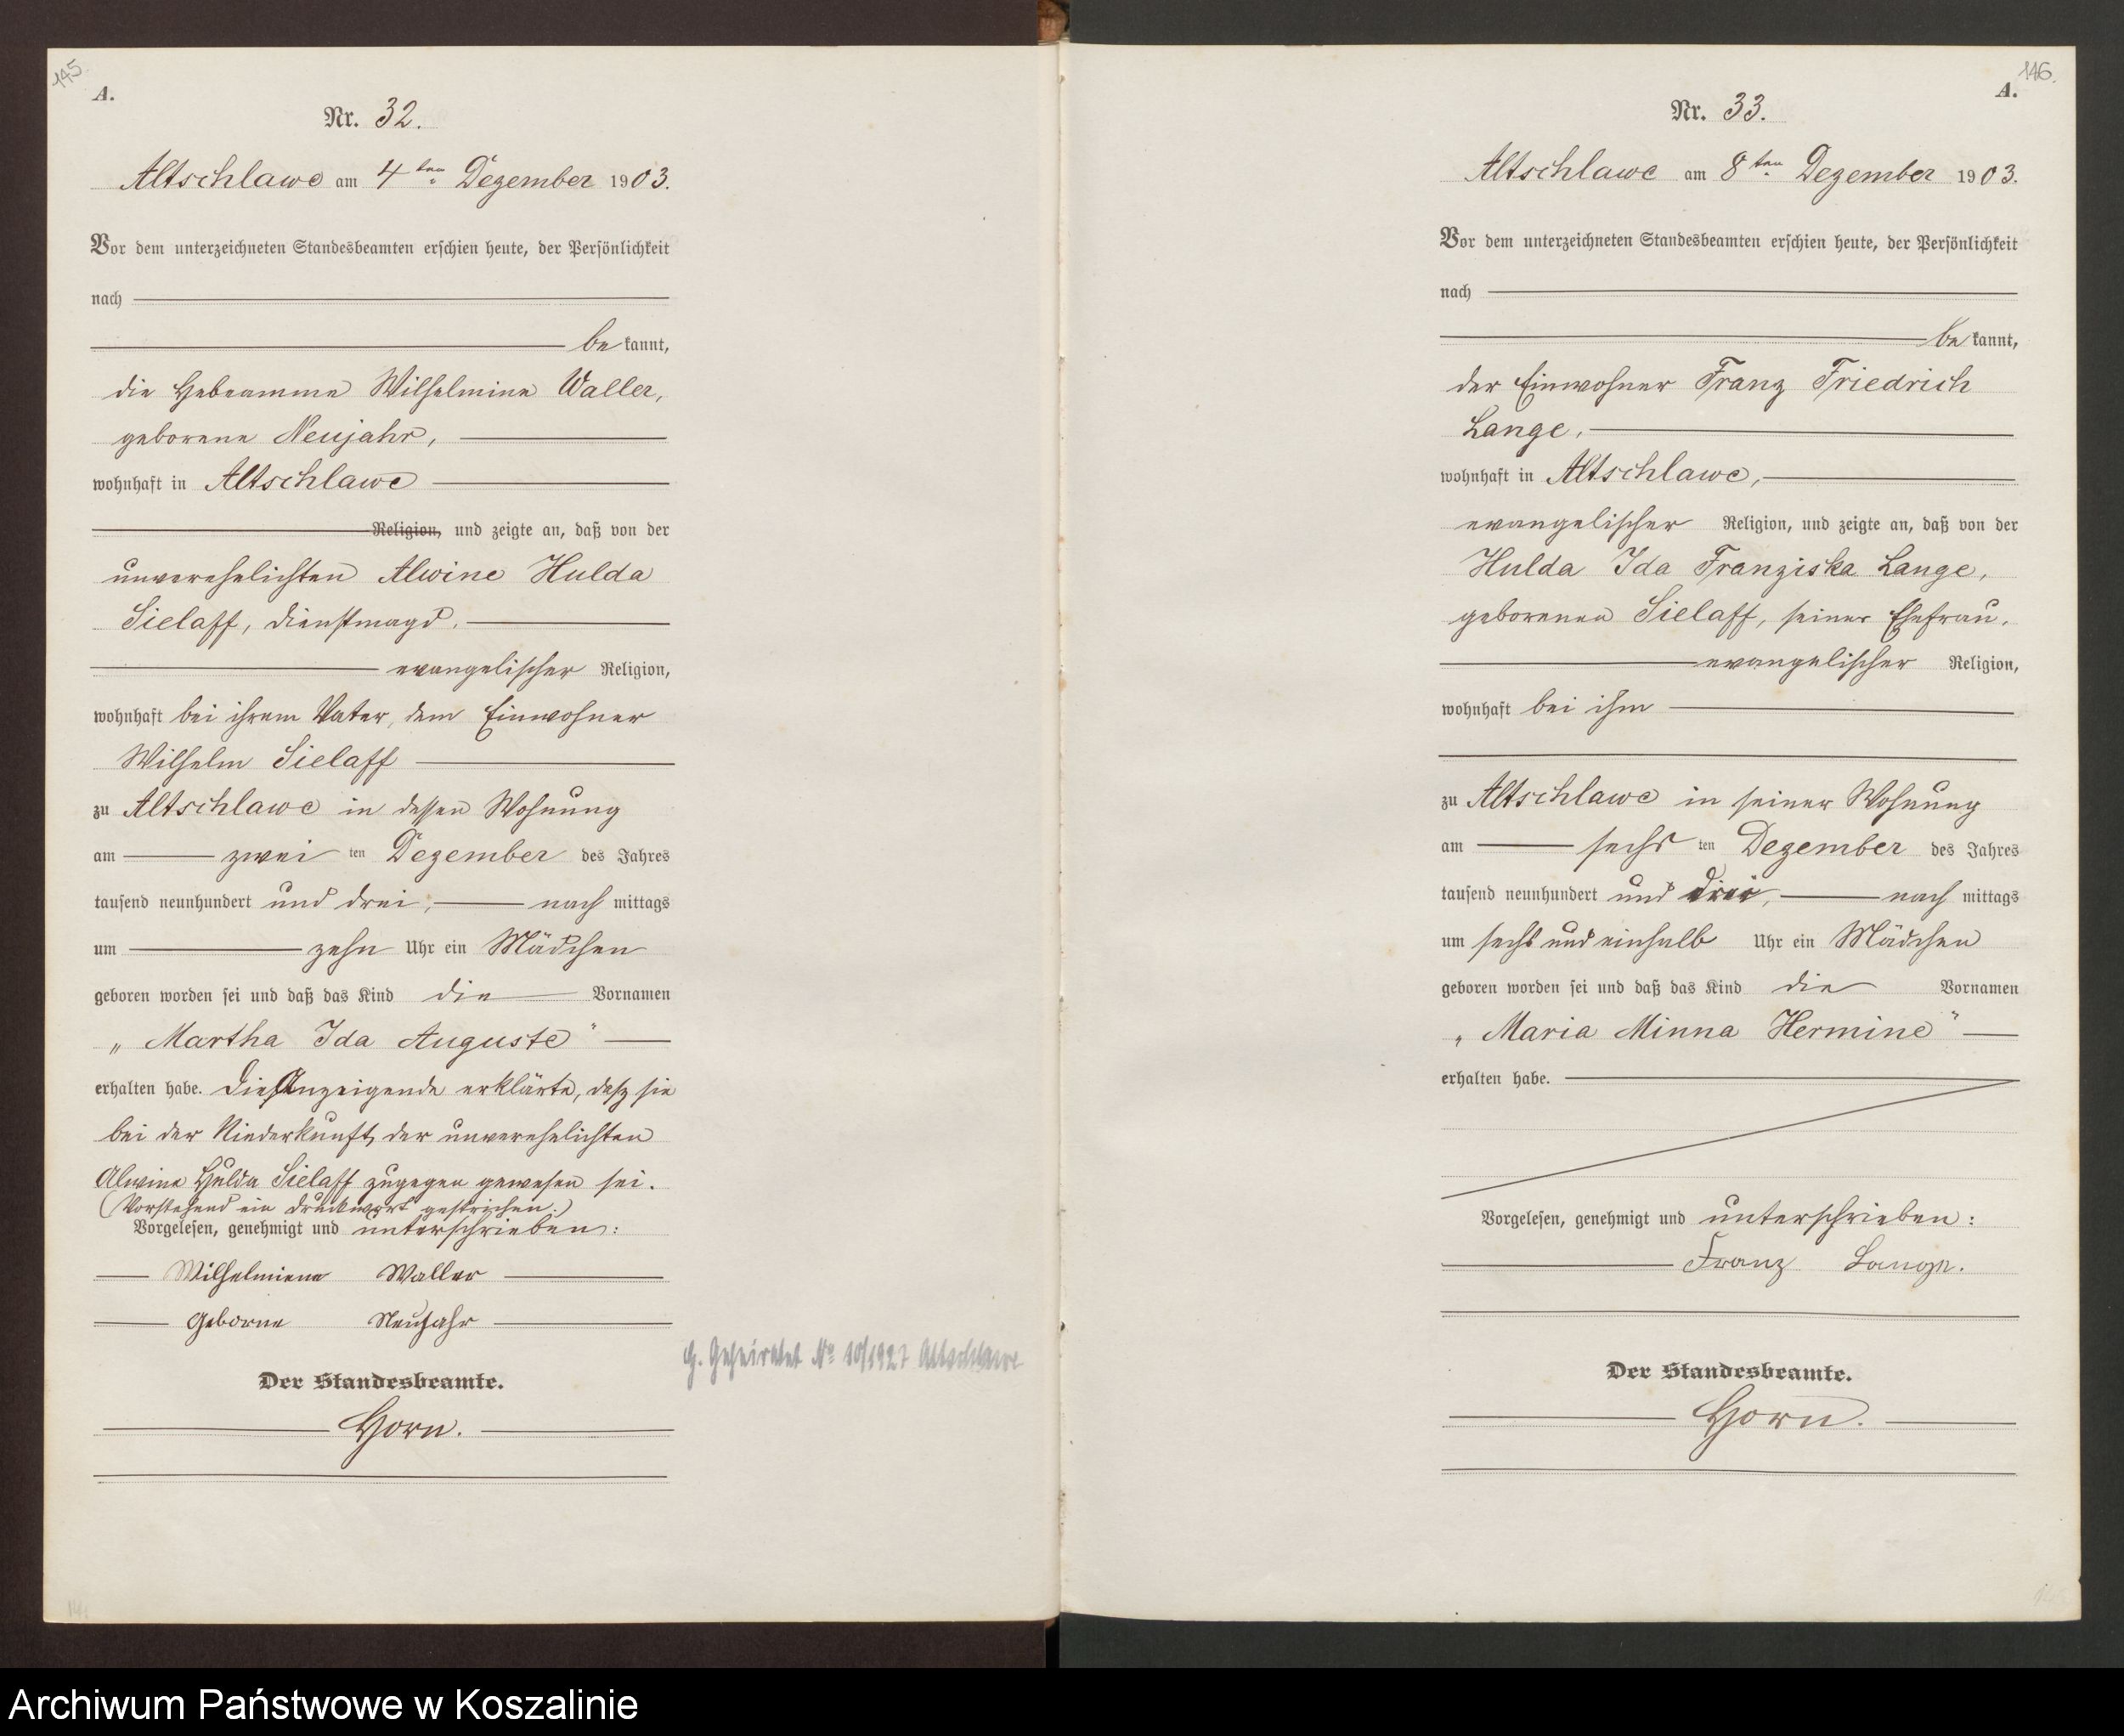 145.
A.
Nr. 32.
Altschlawe am 4ten Dezember 1903.
Vor dem unterzeichneten Standesbeamten erschien heute, der Persönlichkeit
nach
bekannt,
die Hebeamme Wilhelmine Waller,
geborene Neujahr,
wohnhaft in Altschlawe
Religion, und zeigte an, daß von der
unverehelichten Alwine Hulda
Sielaff, Dienstmagd,
evangelischer Religion,
wohnhaft bei ihrem Vater, dem Einwohner
Wilhelm Sielaff
zu Altschlawe in dessen Wohnung
am zweiten Dezember des Jahres
tausend neunhundert und drei, nachmittags
um zehn Uhr ein Mädchen
geboren worden sei und daß das Kind die Vornamen
„Martha Ida Auguste“
erhalten habe. Die Anzeigende erklärte, daß sie
bei der Niederkunft der unverehelichten
Alwine Hulda Sielaff zugegen gewesen sei.
(Vorstehend ein Druckwort gestrichen.)
Vorgelesen, genehmigt und unterschrieben:
Wilhelmiene Waller
Geborne Neujahr
G. Geheiratet No 10/1927 Altschlawe
Der Standesbeamte.
Horn.
146.
A.
Nr. 33.
Altschlawe am 8ten Dezember 1903.
Vor dem unterzeichneten Standesbeamten erschien heute, der Persönlichkeit
nach
bekannt,
der Einwohner Franz Friedrich
Lange,
wohnhaft in Altschlawe,
evangelischer Religion, und zeigte an, daß von der
Hulda Ida Franziska Lange,
geborenen Sielaff, seiner Ehefrau,
evangelischer Religion,
wohnhaft bei ihm
zu Altschlawe in seiner Wohnung
am sechsten Dezember des Jahres
tausend neunhundert und drei, nachmittags
um sechs und einhalb Uhr ein Mädchen
geboren worden sei und daß das Kind die Vornamen
„Maria Minna Hermine“
erhalten habe.
Vorgelesen, genehmigt und unterschrieben:
Franz Lange.
Der Standesbeamte.
Horn.
Archiwum Państwowe w Koszalinie